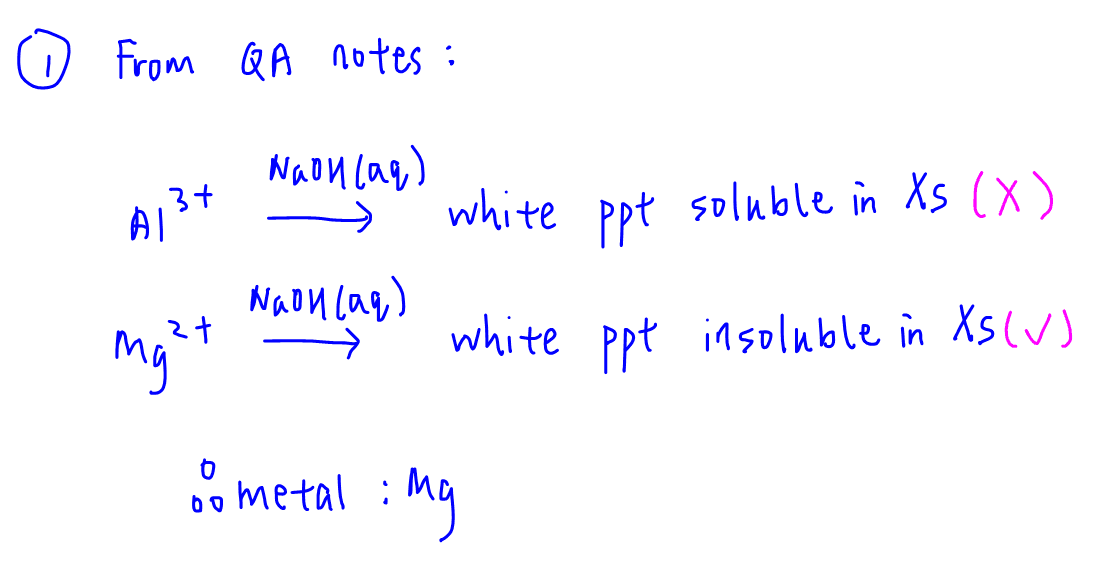 ① From QA notes :
NaOH(aq)
Al³⁺ → white ppt soluble in Xs (X)
NaOH(aq)
Mg²⁺ → white ppt insoluble in Xs (✓)
∴ metal : Mg